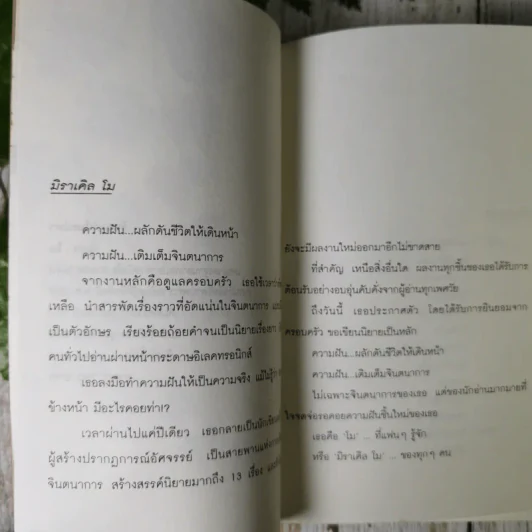 มิราเคิล โม
ความฝัน...ผลักดันชีวิตให้เดินหน้า
ความฝัน...เติมเต็มจินตนาการ
จากงานหลักคือดูแลครอบครัว เธอใช้เวลาว่าง
เหลือ นำสารพัดเรื่องราวที่อัดแน่นในจินตนาการ
เป็นตัวอักษร เรียงร้อยถ้อยคำจนเป็นนิยายเรื่องยาว
คนทั่วไปอ่านผ่านหน้ากระดาษอิเลคทรอนิกส์
เธอลงมือทำความฝันให้เป็นความจริง แม้ไม่รู้ว่า
ข้างหน้า มีอะไรคอยท่า!?
เวลาผ่านไปแค่ปีเดียว เธอกลายเป็นนักเขียน
ผู้สร้างปรากฏการณ์อัศจรรย์ เป็นสายพานแห่ง
จินตนาการ สร้างสรรค์นิยายมากถึง 13 เรื่อง
ยังจะมีผลงานใหม่ออกมาอีกไม่ขาดสาย
ที่สำคัญ เหนือสิ่งอื่นใด ผลงานทุกชิ้นของเธอได้รับการ
ต้อนรับอย่างอบอุ่นคับคั่งจากผู้อ่านทุกเพศวัย
ถึงวันนี้ เธอประกาศตัว โดยได้รับการยินยอมจาก
ครอบครัว ขอเขียนนิยายเป็นหลัก
ความฝัน...ผลักดันชีวิตให้เดินหน้า
ความฝัน...เติมเต็มจินตนาการ
ไม่เฉพาะจินตนาการของเธอ แต่ของนักอ่านมากมายที่
ใจจดจ่อรอคอยความฝันชิ้นใหม่ของเธอ
เธอคือ 'โม' ... ที่แฟนๆ รู้จัก
หรือ 'มิราเคิล โม' ... ของทุกๆ คน